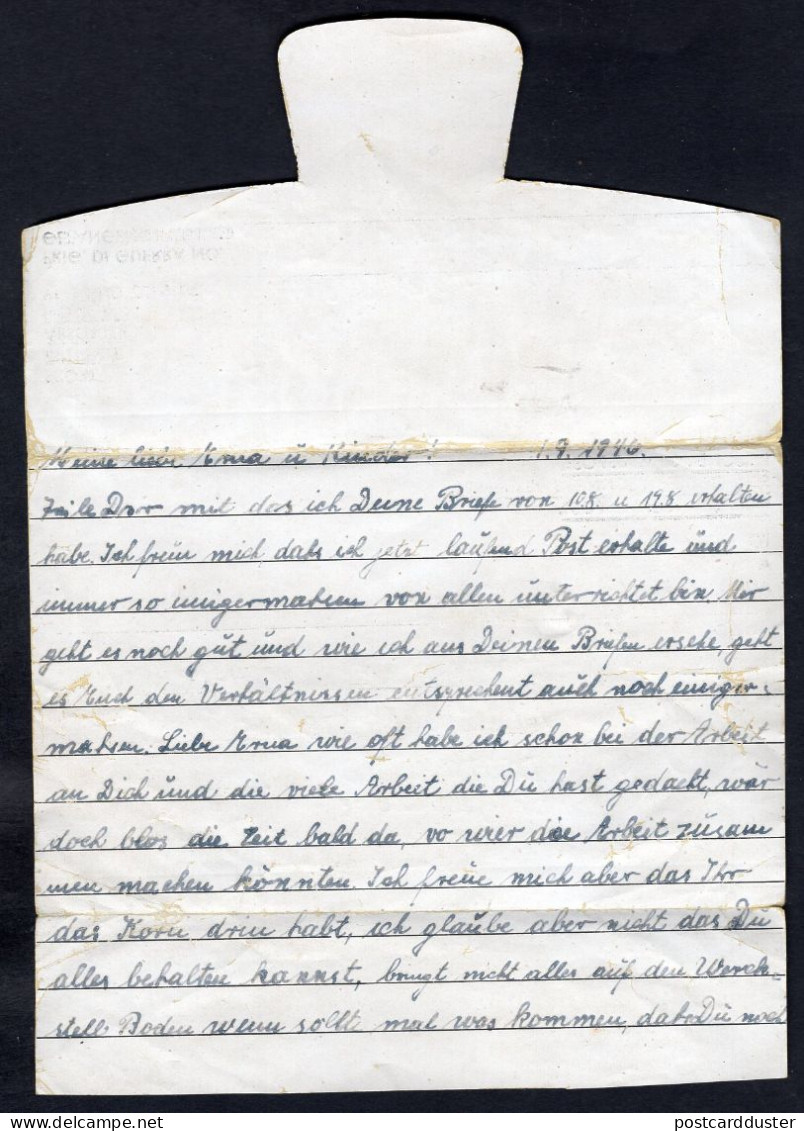 Meine liebe Erna u Kinder! 1.9.1946.
Teile Dir mit das ich Deine Briefe von 10.8. u 19.8 erhalten
habe. Ich freue mich dahs ich jetzt laufend Post erhalte und
immer so einigermahsen von allen unterrichtet bin. Mir
geht es noch gut und wie ich aus Deinen Briefen ersehe, geht
es Euch den Verhältnissen entsprechent auch noch einiger-
mahsen. Liebe Erna wie oft habe ich schon bei der Arbeit
an Dich und die viele Arbeit die Du hast gedacht, wär
doch blos die Zeit bald da, wo wier die Arbeit zusam
men machen könnten. Ich freue mich aber das Ihr
das Korn drin habt, ich glaube aber nicht das Du
alles behalten kannst, bringt nicht alles auf den Werch-
stell Boden wenn sollt mal was kommen, dahs Du noch
postcardduster